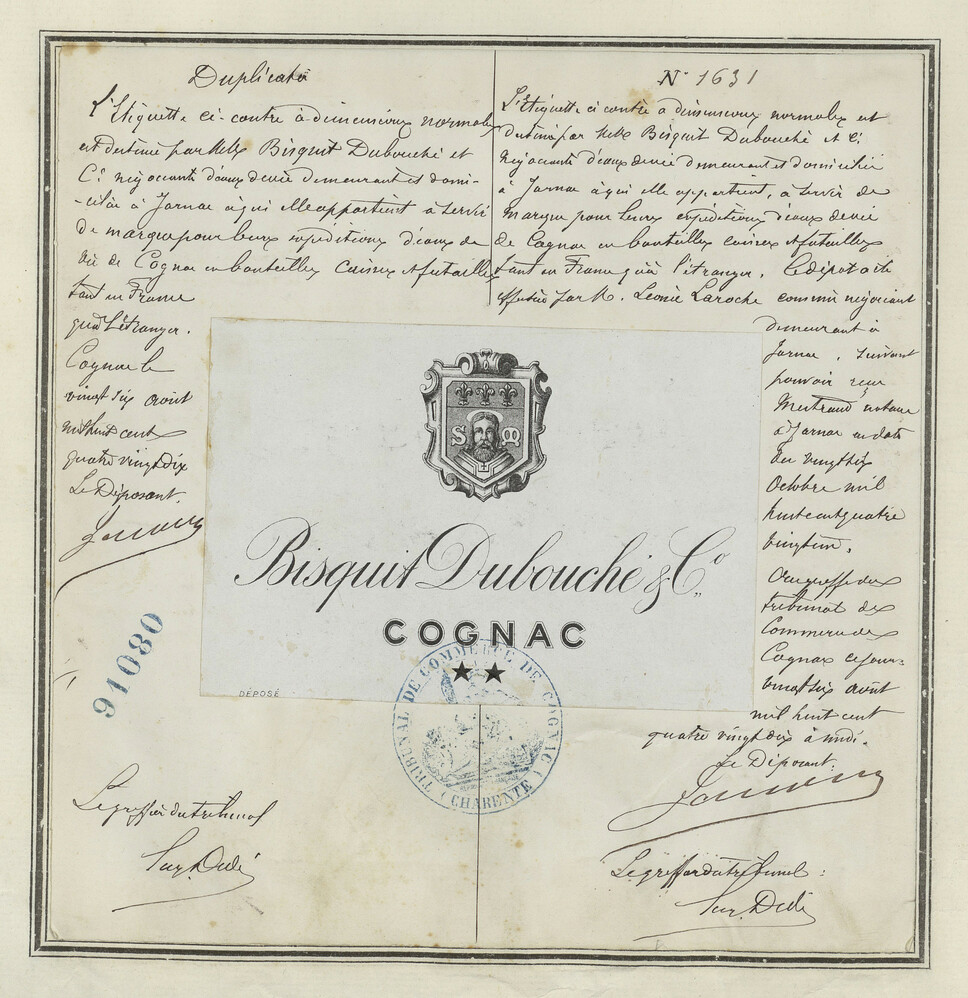 Duplicata
L'Etiquette ci-contre à dimensions normales
est destinée par MMrs Bisquit Dubouché et
Cie négociants d'eaux de vie demeurant et domi-
-ciliés à Jarnac à qui elle appartient à servir
de marque pour leurs expéditions d'eaux de
vie de Cognac en bouteilles caisses et futailles
tant en France
qu'à l'étranger.
Cognac le
vingt six août
mil huit cent
quatre vingt dix
Le Déposant.
91080
Le greffier du tribunal
N° 1631
L'Etiquette ci contre à dimensions normales est
destinée par MMrs Bisquit Dubouché et Cie
négociants d'eaux de vie demeurant et domiciliés
à Jarnac à qui elle appartient, à servir de
marque pour leurs expéditions d'eaux de vie
de Cognac en bouteilles caisses et futailles
tant en France qu'à l'étranger. Le dépôt a été
effectué par M. Léonce Laroche commis négociant
demeurant à
Jarnac, suivant
pouvoir reçu
notaire
à Jarnac en date
du vingt six
Octobre mil
huit cent quatre
vingt un.
Au greffe du
tribunal de
Commerce de
Cognac ce jour
vingt six août
mil huit cent
quatre vingt dix à midi.
Le Déposant:
Le greffier du tribunal:
S M
Bisquit Dubouché & Co
COGNAC
DÉPOSÉ
TRIBUNAL DE COMMERCE DE COGNAC
(CHARENTE)